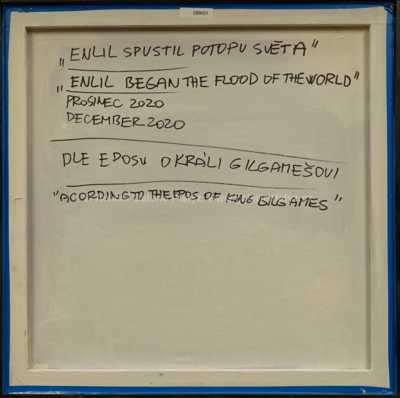 „ENLIL SPUSTIL POTOPU SVĚTA"
„ENLIL BEGAN THE FLOOD OF THE WORLD"
PROSINEC 2020
DECEMBER 2020
DLE EPOSU O KRÁLI GILGAMEŠOVI
"ACORDING TO THE EPOS OF KING GILGAMES"